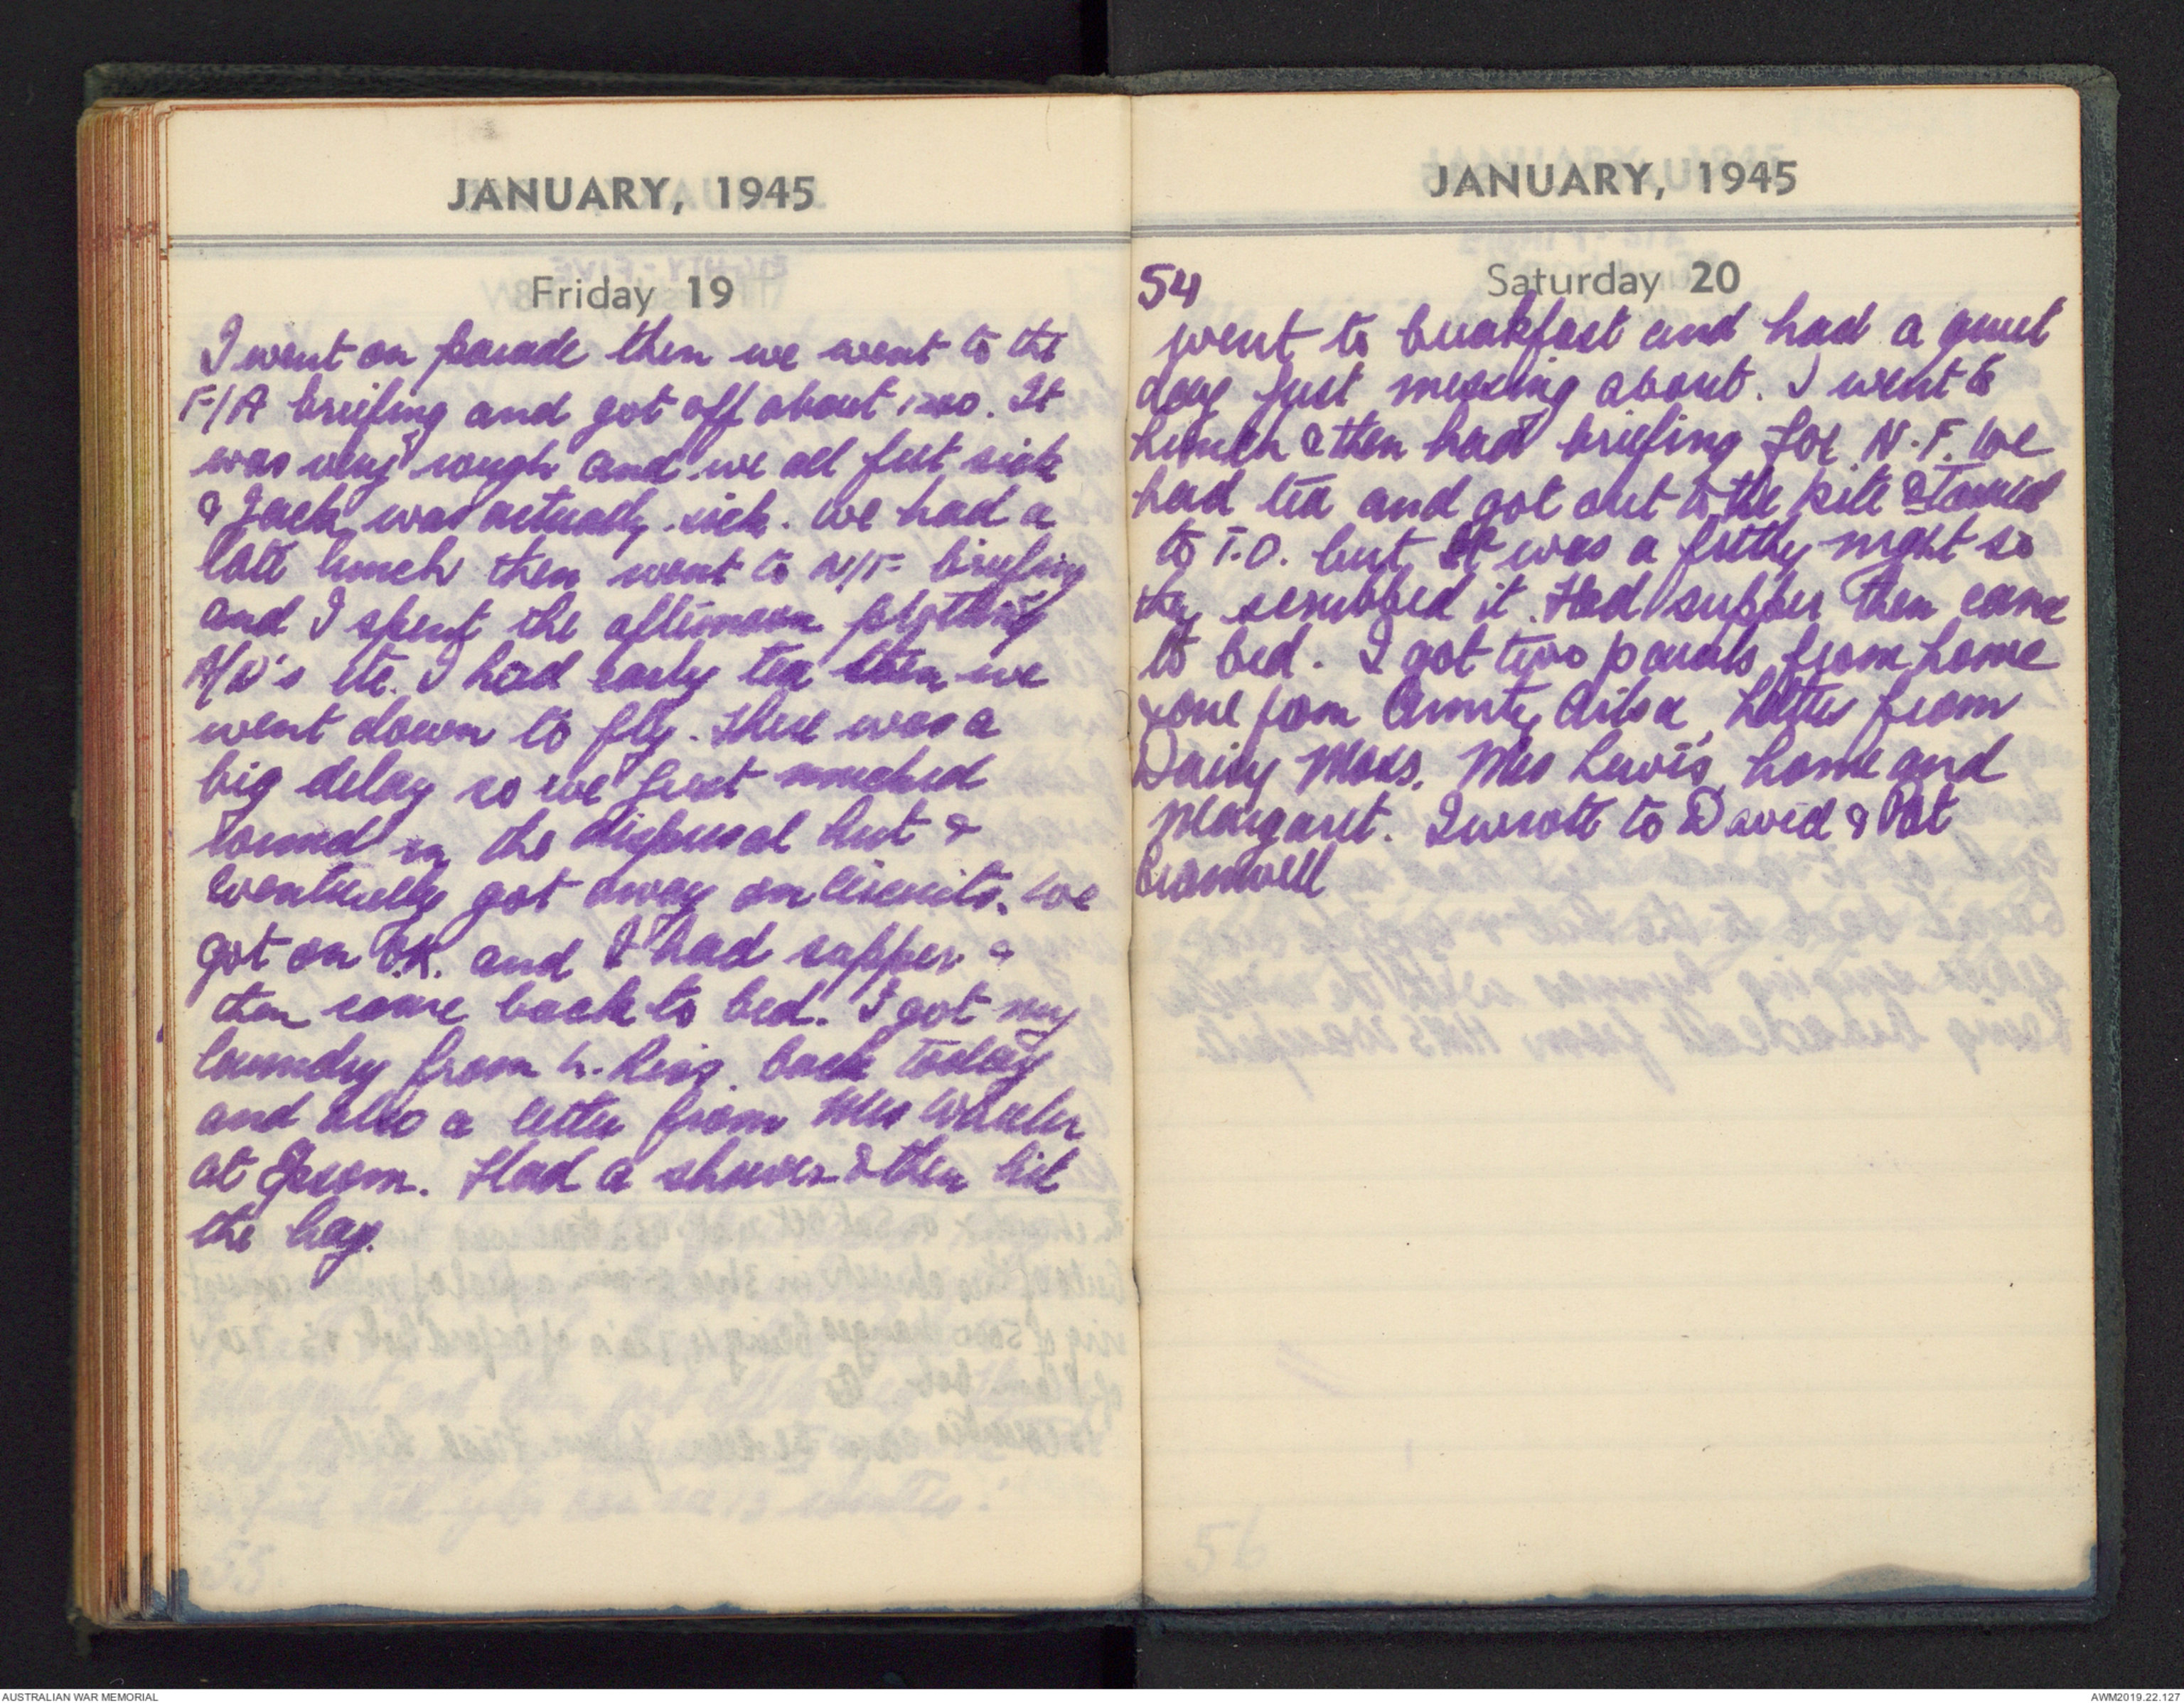 JANUARY, 1945
Friday 19
I went on parade then we went to the
F/A briefing and got off about 1200. It
was very rough and we all felt sick
& Jack was actually sick. We had a
late lunch then went to N/F briefing
and I spent the afternoon plotting
A/D's etc. I had early tea then we
went down to fly. There was a
big delay so we just mucked
round in the dispersal hut &
eventually got away on circuits. We
got on O.K. and I had supper &
then came back to bed. I got my
laundry from L. back today
and also a letter from Mrs Wheeler
at Epsom. Had a shower & then hit
the hay.
55
JANUARY, 1945
54
Saturday 20
Went to breakfast and had a quiet
day just messing about. I went to
lunch & then had briefing for N.F. We
had tea and got out to the kite & taxied
to T.O. but it was a filthy night so
they scrubbed it. Had supper then came
to bed. I got two parcels from home
& one fom Aunty Ailsa, Letters from
Daisy Moss, Mrs Lewis, home and
Margaret. I wrote to David & Pat
Cromwell
56
AUSTRALIAN WAR MEMORIAL
AWM2019.22.127